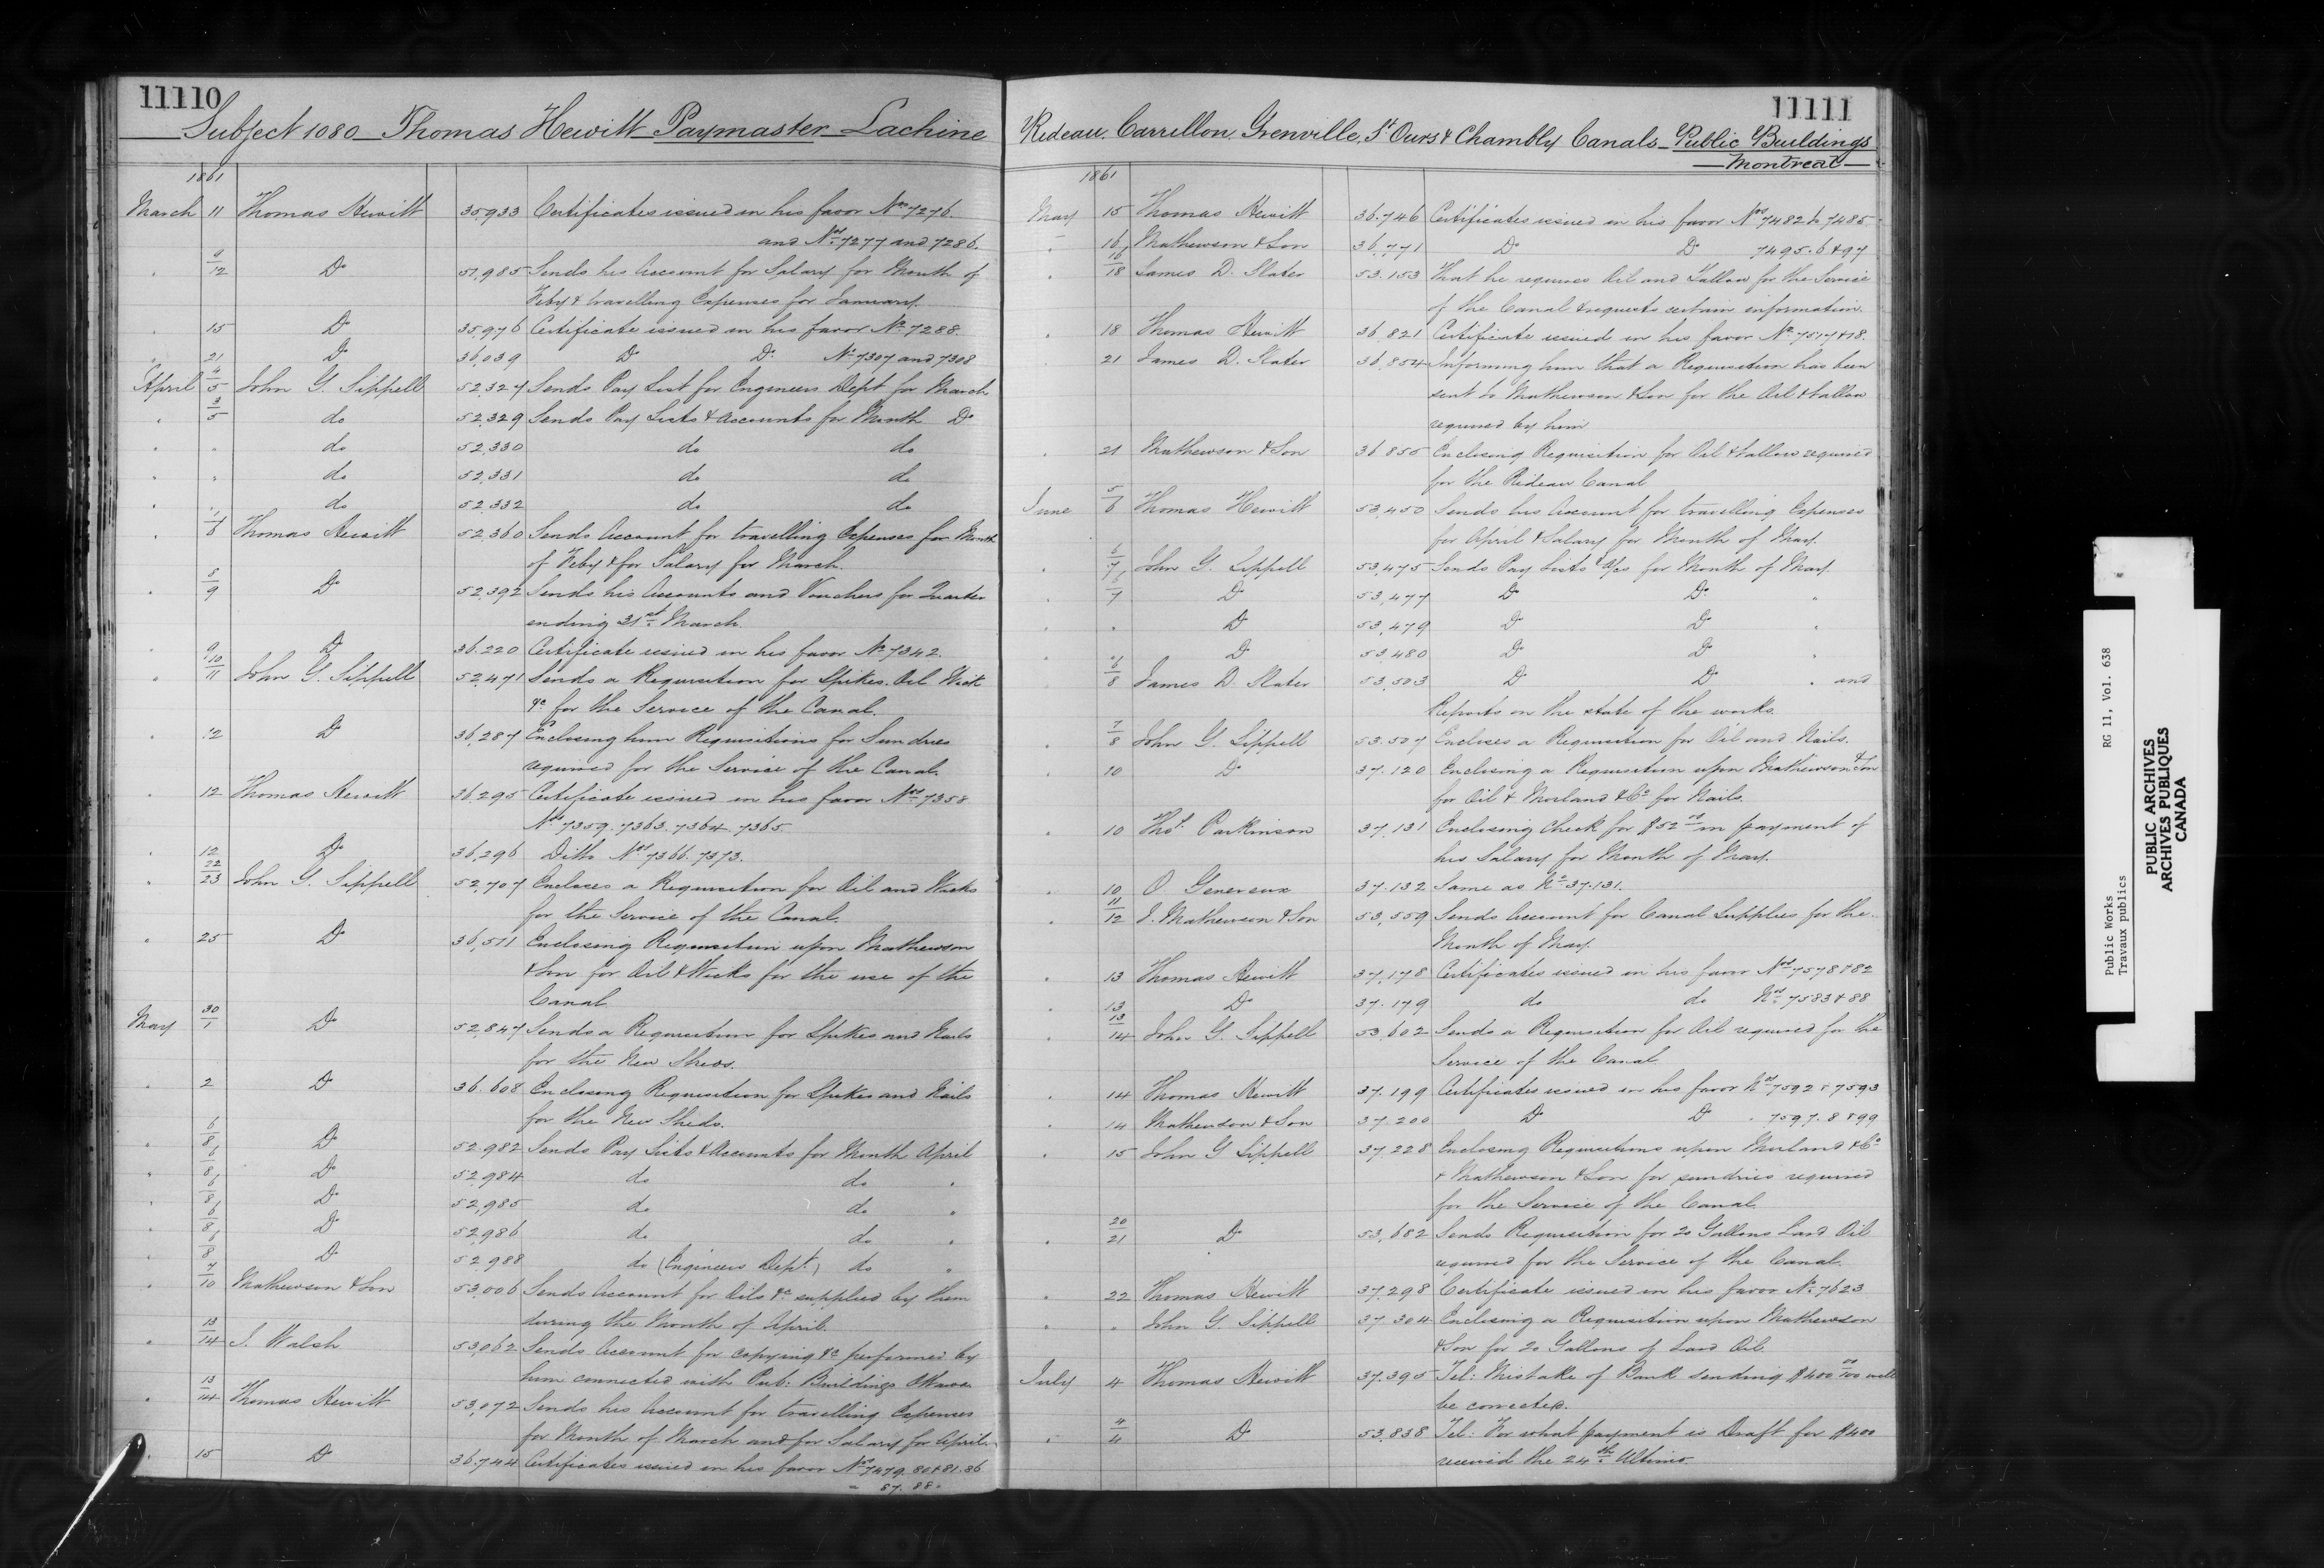 11110
Subject 1080 Thomas Hewitt Paymaster Lachine
1861
March 11 Thomas Hewitt 35,933 Certificates issued in his favor Nos 7276.
and Nos 7277 and 7286.
" 9/12 Do 51,985 Sends his Account for Salary for Month of
Feby & travelling Expenses for January.
" 15 Do 35,976 Certificate issued in his favor No 7288.
" 21 Do 36,039 Do Do No 7307 and 7308
April 4/5 John G. Sippell 52,327 Sends Pay List for Engineers Dept for March
" 3/5 do 52,329 Sends Pay Lists & Accounts for Month Do
" " do 52,330 do do
" " do 52,331 do do
" " do 52,332 do do
" Thomas Hewitt 52,360 Sends Account for travelling Expenses for Month
of Feby & for Salary for March.
" 8/9 Do 52,392 Sends his Accounts and Vouchers for Quarter
ending 31st March.
" 9 Do 36.220 Certificate issued in his favor No 7342.
" 10/11 John G. Sippell 52,471 Sends a Requisition for Spikes. Oil Wick
&c for the Service of the Canal.
" 12 Do 36,287 Enclosing him Requisitions for Sundries
required for the Service of the Canal.
" 12 Thomas Hewitt 36,295 Certificate issued in his favor Nos 7358
Nos 7359. 7363. 7364. 7365
" 12 Do 36,296 Ditto Nos 7366. 7373.
" 22/23 John G. Sippell 52,707 Encloses a Requisition for Oil and Wicks
for the Service of the Canal.
" 25 Do 36,511 Enclosing Requisition upon Mathewson
& Son for Oil & Wicks for the use of the
Canal
May 30/1 Do 52,847 Sends a Requisition for Spikes and Nails
for the New Sheds.
" 2 Do 36.608 Enclosing Requisition for Spikes and Nails
for the New Sheds.
" 6/8 Do 52,982 Sends Pay Lists & Accounts for Month April
" 6/8 Do 52,984 do do "
" 6/8 Do 52,985 do do "
" 6/8 Do 52,986 do do "
" 6/8 Do 52,988 do (Engineers Dept.) do "
" 7/10 Mathewson & Son 53,006 Sends Account for Oils &c supplied by them
during the Month of April.
" 13/14 Walsh 53,062 Sends Account for copying &c performed by
him connected with Pub: Buildings Ottawa
" 13/14 Thomas Hewitt 53,072 Sends his Account for travelling Expenses
for Month of March and for Salary for April.
" 15 Do 36,744 Certificates issued in his favor Nos 7479. 80 & 81. 86
" 87. 88.
11111
Rideau, Carrellon, Grenville, St Ours & Chambly Canals - Public Buildings
Montreal
1861
May 15 Thomas Hewitt 36.746 Certificates issued in his favor Nos 7482 to 7485.
" 16 Mathewson & Son 36,771 Do Do 7495. 6 & 97
" 16/18 James D. Slater 53.153 That he requires Oil and Tallow for the Service
of the Canal & requests certain information.
" 18 Thomas Hewitt 36,821 Certificate issued in his favor No 7517 & 18.
" 21 James D. Slater 36,854 Informing him that a Requisition has been
sent to Mathewson & Son for the Oil & tallow
required by him
" 21 Mathewson & Son 36855 Enclosing Requisition for Oil & tallow required
for the Rideau Canal
June 5/6 Thomas Hewitt 53,450 Sends his Account for travelling Expenses
for April & Salary for Month of May.
" 6/7 John G. Sippell 53,475 Sends Pay Lists & a/cs for Month of May.
" 6/7 Do 53,477 Do Do "
" " Do 53,479 Do Do "
" " Do 53,480 Do Do "
" 6/8 James D. Slater 53,503 Do Do " and
Reports on the state of the works.
" 7/8 John G. Sippell 53.507 Encloses a Requisition for Oil and Nails.
" 10 Do 37.120 Enclosing a Requisition upon Mathewson & Son
for Oil & Morland & Co for Nails.
" 10 Thos. Parkinson 37,131 Enclosing Check for $52 in payment of
his Salary for Month of May.
" 10 O. Genereux 37.132 Same as No 37.131.
" 11/12 J. Mathewson & Son 53,559 Sends Account for Canal Supplies for the
Month of May.
" 13 Thomas Hewitt 37,178 Certificates issued in his favor Nos 7578 & 82
" 13 Do 37.179 do do Nos 7583 & 88
" 13/14 John G. Sippell 53,602 Sends a Requisition for Oil required for the
Service of the Canal
" 14 Thomas Hewitt 37.199 Certificates issued in his favor Nos 7592 & 7593
" 14 Mathewson & Son 37.200 Do Do " 7597. 8 & 99
" 15 John G Sippell 37.228 Enclosing Requisitions upon Morland & Co
& Mathewson & Son for sundries required
for the Service of the Canal.
" 20/21 Do 53,682 Sends Requisition for 20 Gallons Lard Oil
required for the Service of the Canal.
" 22 Thomas Hewitt 37,298 Certificate issued in his favor No 7623
" " John G. Sippell 37.304 Enclosing a Requisition upon Mathewson
& Son for 20 Gallons of Lard Oil
July 4 Thomas Hewitt 37.395 Tel: Mistake of Bank sending $400 00/100 will
be corrected.
" 4/4 Do 53,838 Tel: For what payment is Draft for $400
received the 24th Ultimo
Public Works RG 11, Vol. 638
Travaux publics
PUBLIC ARCHIVES
ARCHIVES PUBLIQUES
CANADA